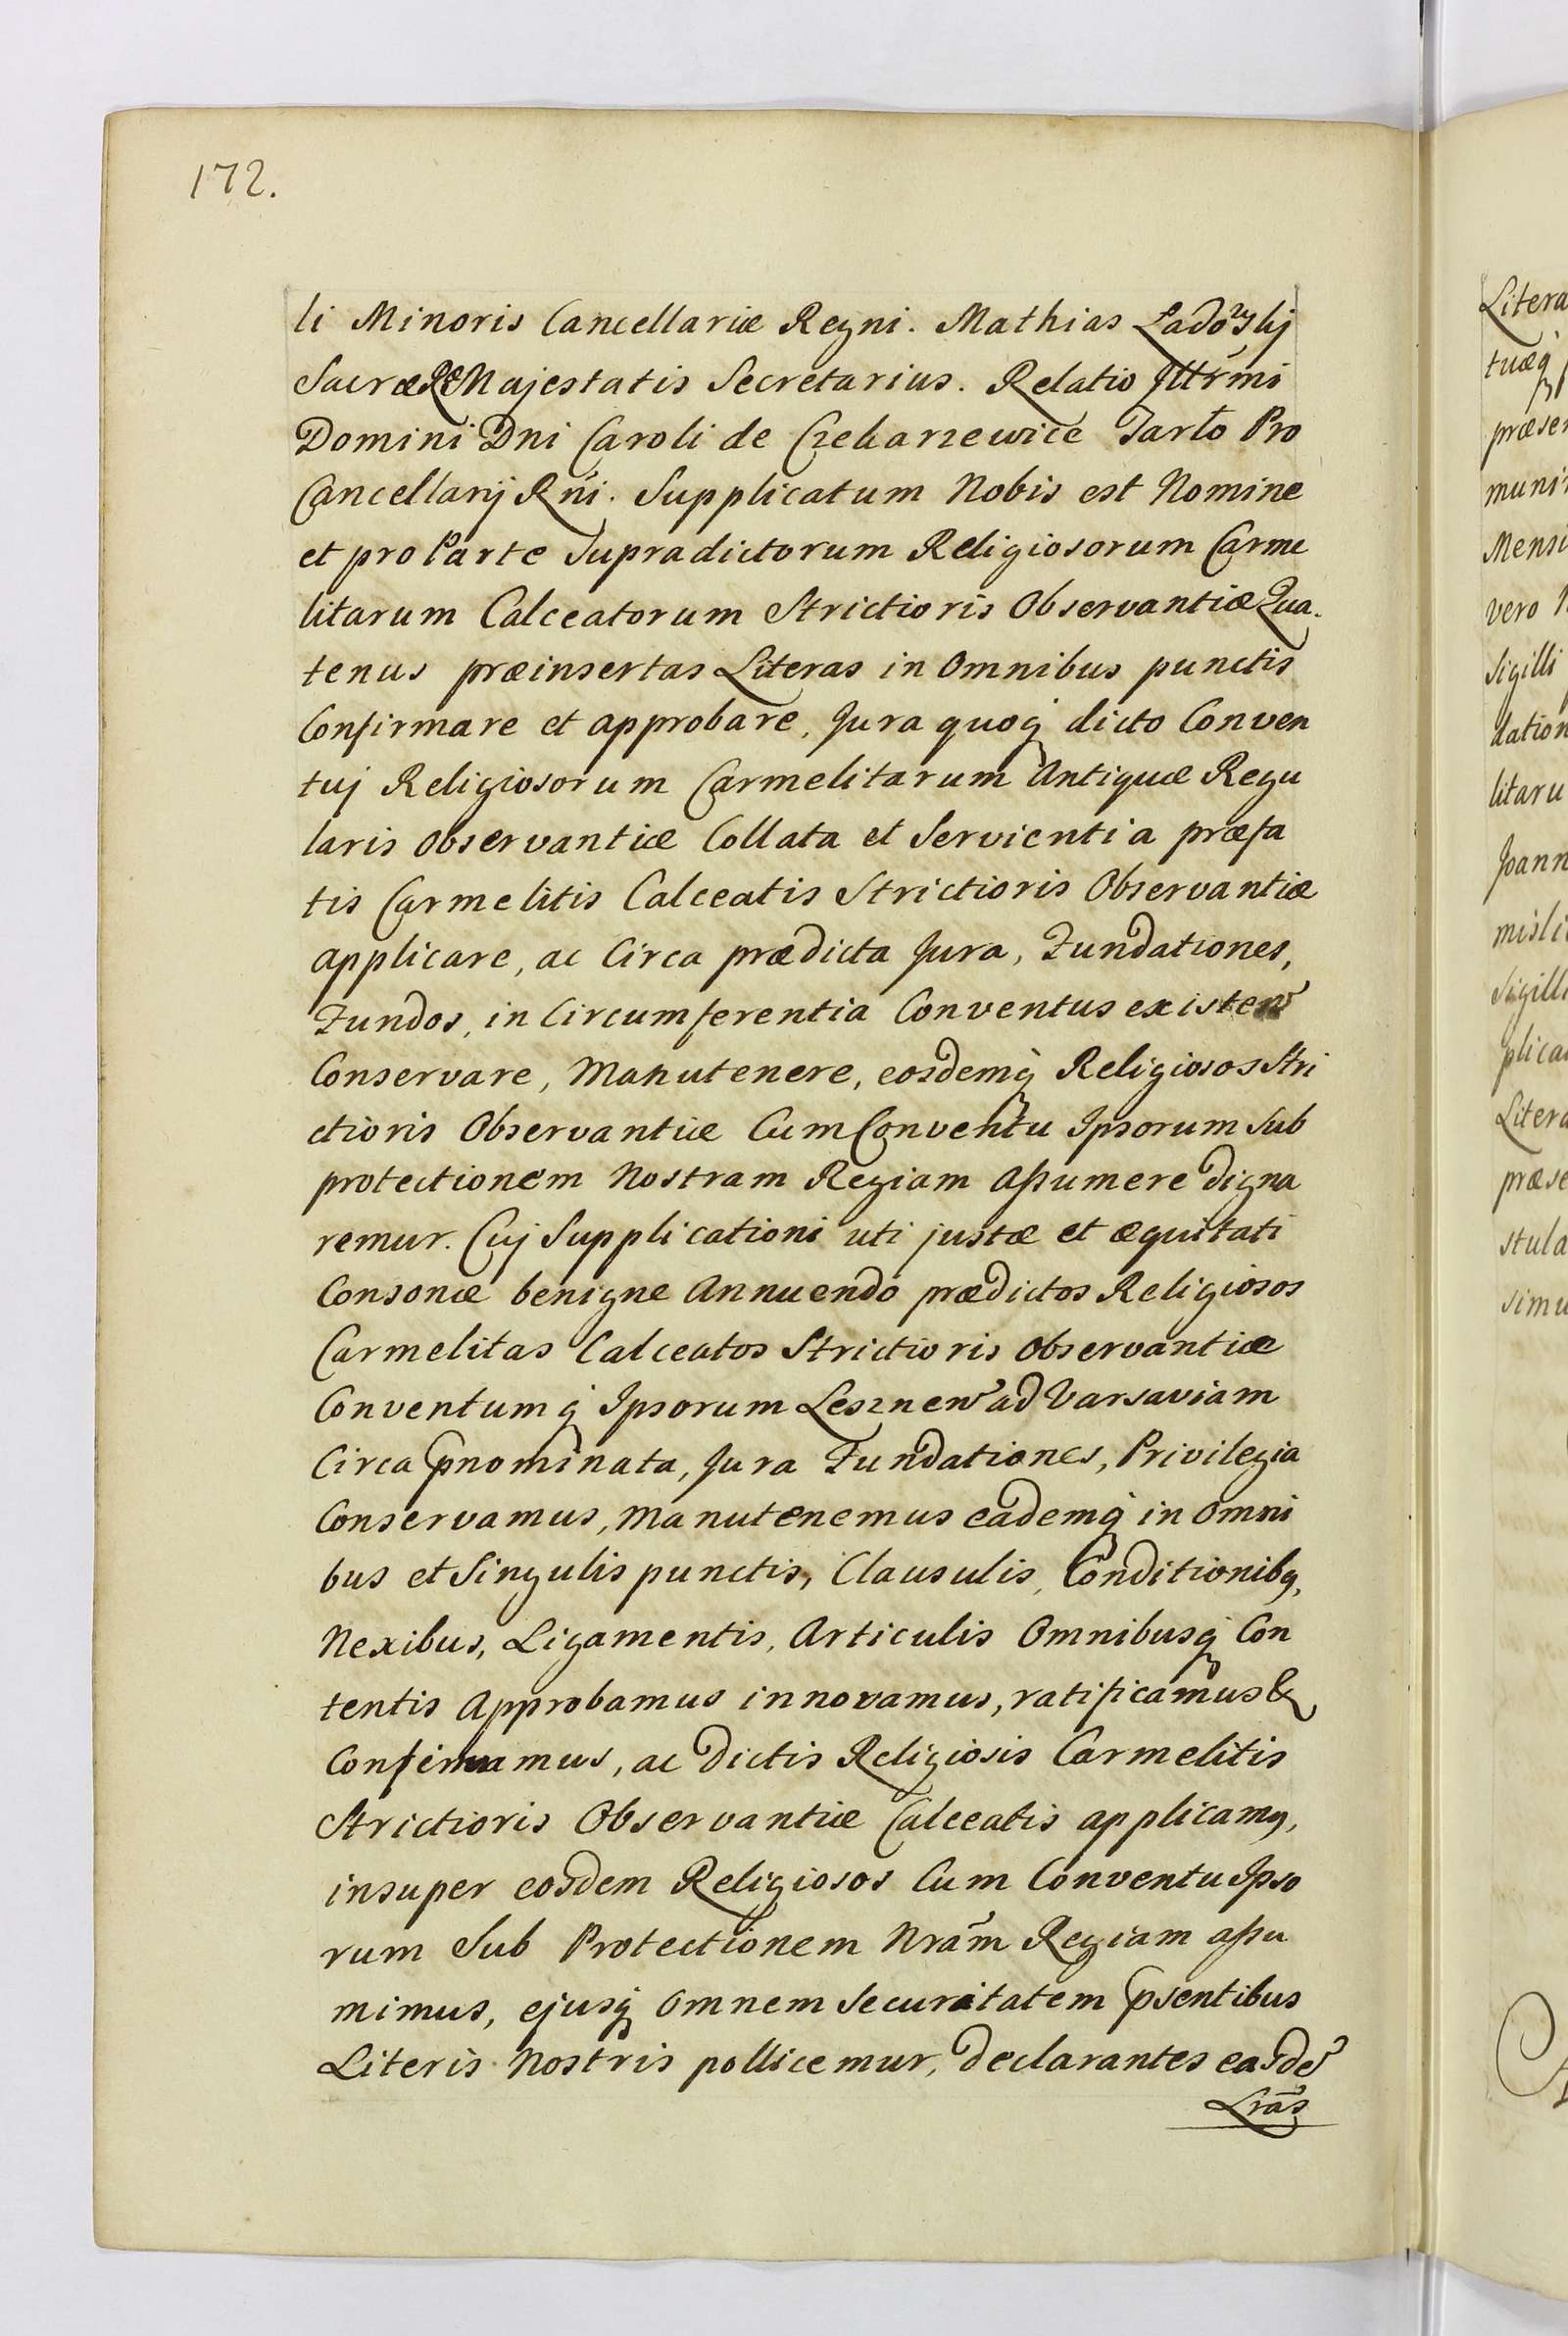 172.
li Minoris Cancellariæ Regni. Mathias
Sacræ Rę Majestatis Secretarius. Relatio Illr̃mi
Domini Dni Caroli de Czekarzewice Tarło Pro
Cancellarij Rñi. Supplicatum Nobis est Nomine
et pro Parte Supradictorum Religiosorum Carme
litarum Calceatorum Strictioris Observantiæ Qua.
tenus præinsertas Literas in Omnibus punctis
Confirmare et approbare, Jura quoq dicto Conven
tuj Religiosorum Carmelitarum Antiquæ Regu
laris Observantiæ Collata et Servientia præfa
tis Carmelitis Calceatis Strictioris Observantiæ
applicare, ac Circa prædicta Jura, Fundationes,
Fundos, in Circumferentia Conventus existen̄
Conservare, Manutenere, eosdemq Religiosos Stri
ctioris Observantiæ Cum Conventu Ipsorum Sub
protectionem Nostram Regiam Assumere Digna
remur. Cuj Supplicationi uti justæ et æquitati
Consonæ benigne Annuendo prædictos Religiosos
Carmelitas Calceatos Strictioris Observantiæ
Conventumq Ipsorum Lesznen̄ ad Varsaviam
Circa p̄nominata, Jura Fundationes, Privilegia
Conservamus, Manutenemus eademq in Omni
bus et Singulis punctis, Clausulis, Conditionibq,
Nexibus, Ligamentis, Articulis Omnibusq Con
tentis Approbamus innovamus, ratificamus &
Confirmamus, ac Dictis Religiosis Carmelitis
Strictioris Observantiæ Calceatis applicamq,
insuper eosdem Religiosos Cum Conventu Ipso
rum Sub Protectionem Nrãm Regiam assu
mimus, ejusq Omnem Securitatem p̄sentibus
Literis Nostris pollicemur, Declarantes easdē
Lrãs
Litera
tuæq
præsen
muni
Mens
vero
Sigilli
dation
litaru
Joann
misli
Sigilli
plica
Litera
præse
stula
simu